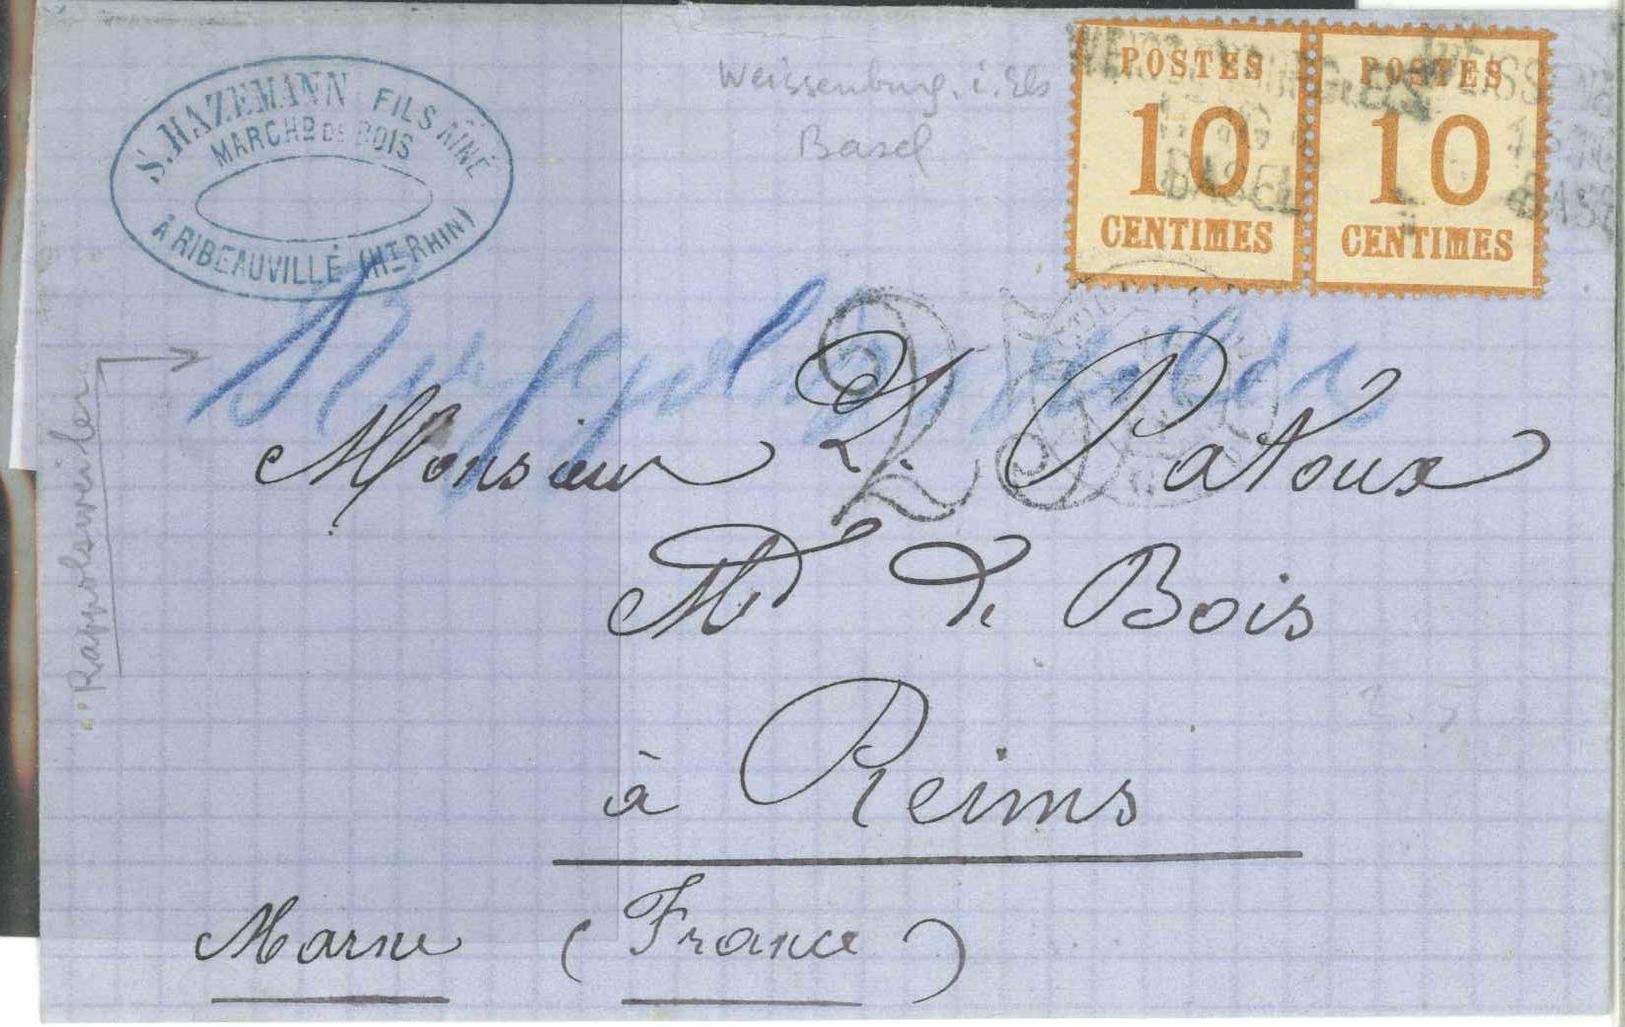 S. HAZEMANN FILS AINÉ
MARCHD DE BOIS
À RIBEAUVILLÉ (HT RHIN)
Weissenburg. i. Els
Basel
POSTES
10
CENTIMES
POSTES
10
CENTIMES
BASEL
Rappoltsweiler
Rappoltsweiler
Monsieur
Patoux
Md de Bois
à Reims
Marne (France)